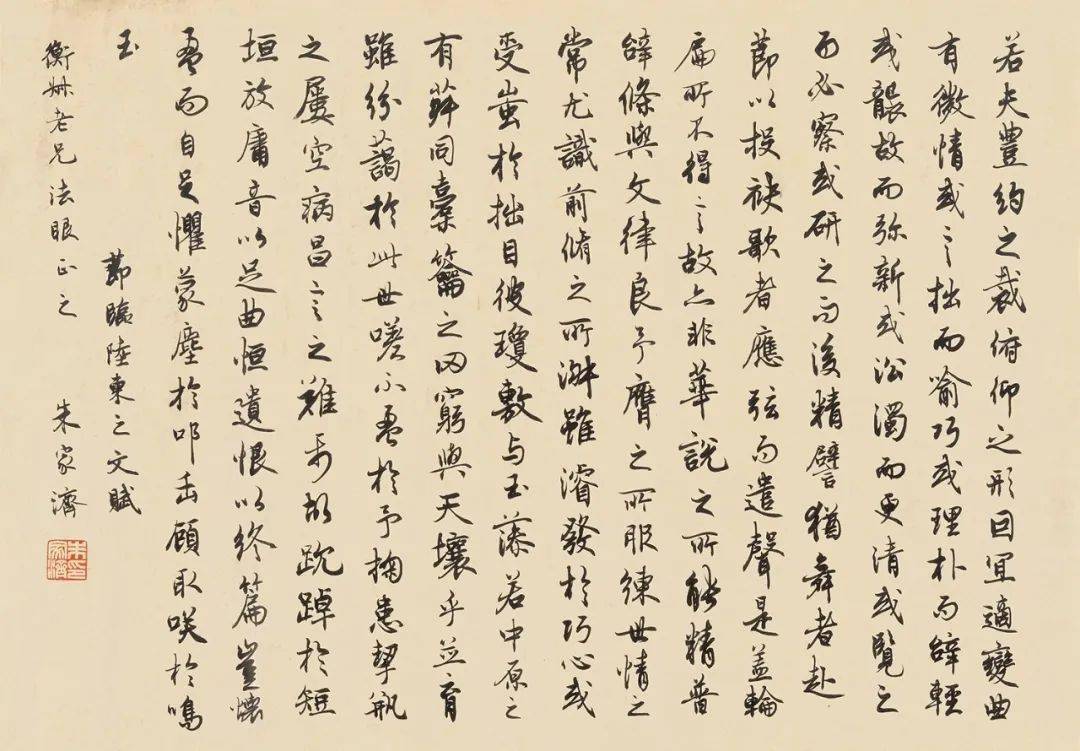 若夫豐約之裁俯仰之形因宜適變曲
有微情或言拙而喻巧或理朴而辭輕
或襲故而弥新或沿濁而更清或覽之
而必察或研之而後精譬猶舞者赴
節以投袂歌者應弦而遣聲是蓋輪
扁所不得言故亦非華說之所能精普
辭條與文律良予膺之所服練世情之
常尤識前脩之所淑雖濬發於巧心或
受蚩於拙目彼瓊敷与玉藻若中原之
有菽同橐籥之罔窮與天壤乎並育
雖紛藹於此世嗟不盈於予掬患挈瓶
之屢空病昌言之難屬故踸踔於短
垣放庸音以足曲恒遺恨以終篇豈懷
盈而自足懼蒙塵於叩缶顧取咲於鳴
玉
節臨陸柬之文賦
衡老兄法眼正之
朱家濟
朱家濟印